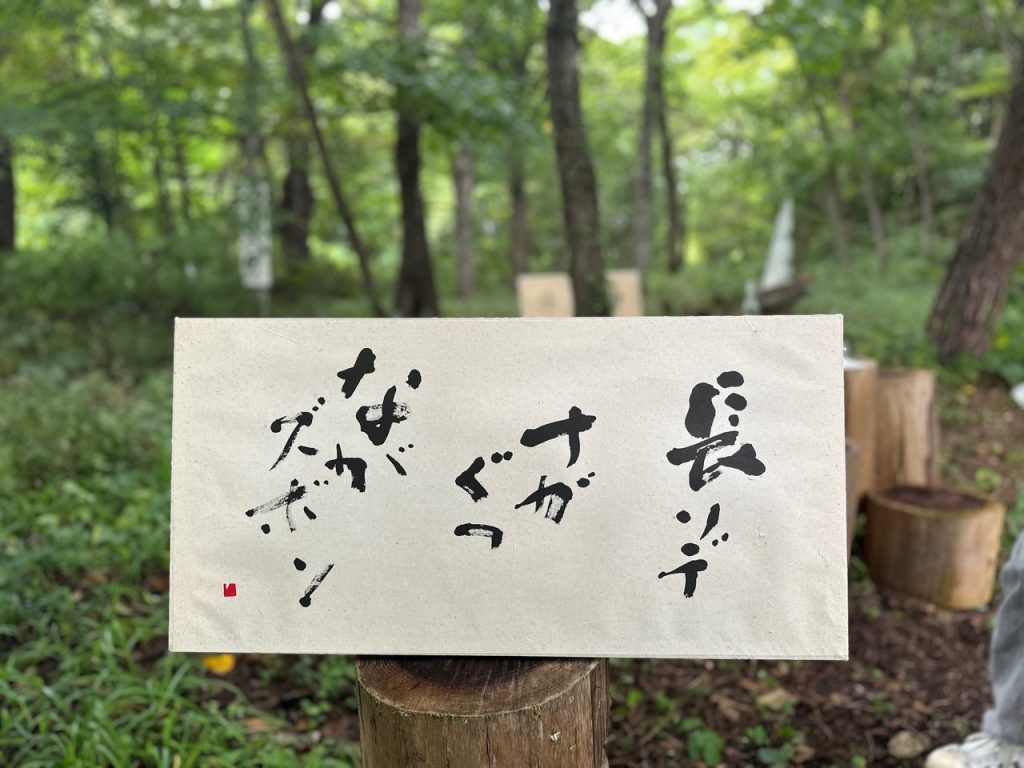 長ソデ
ナガ
ぐつ
なが
ズボン